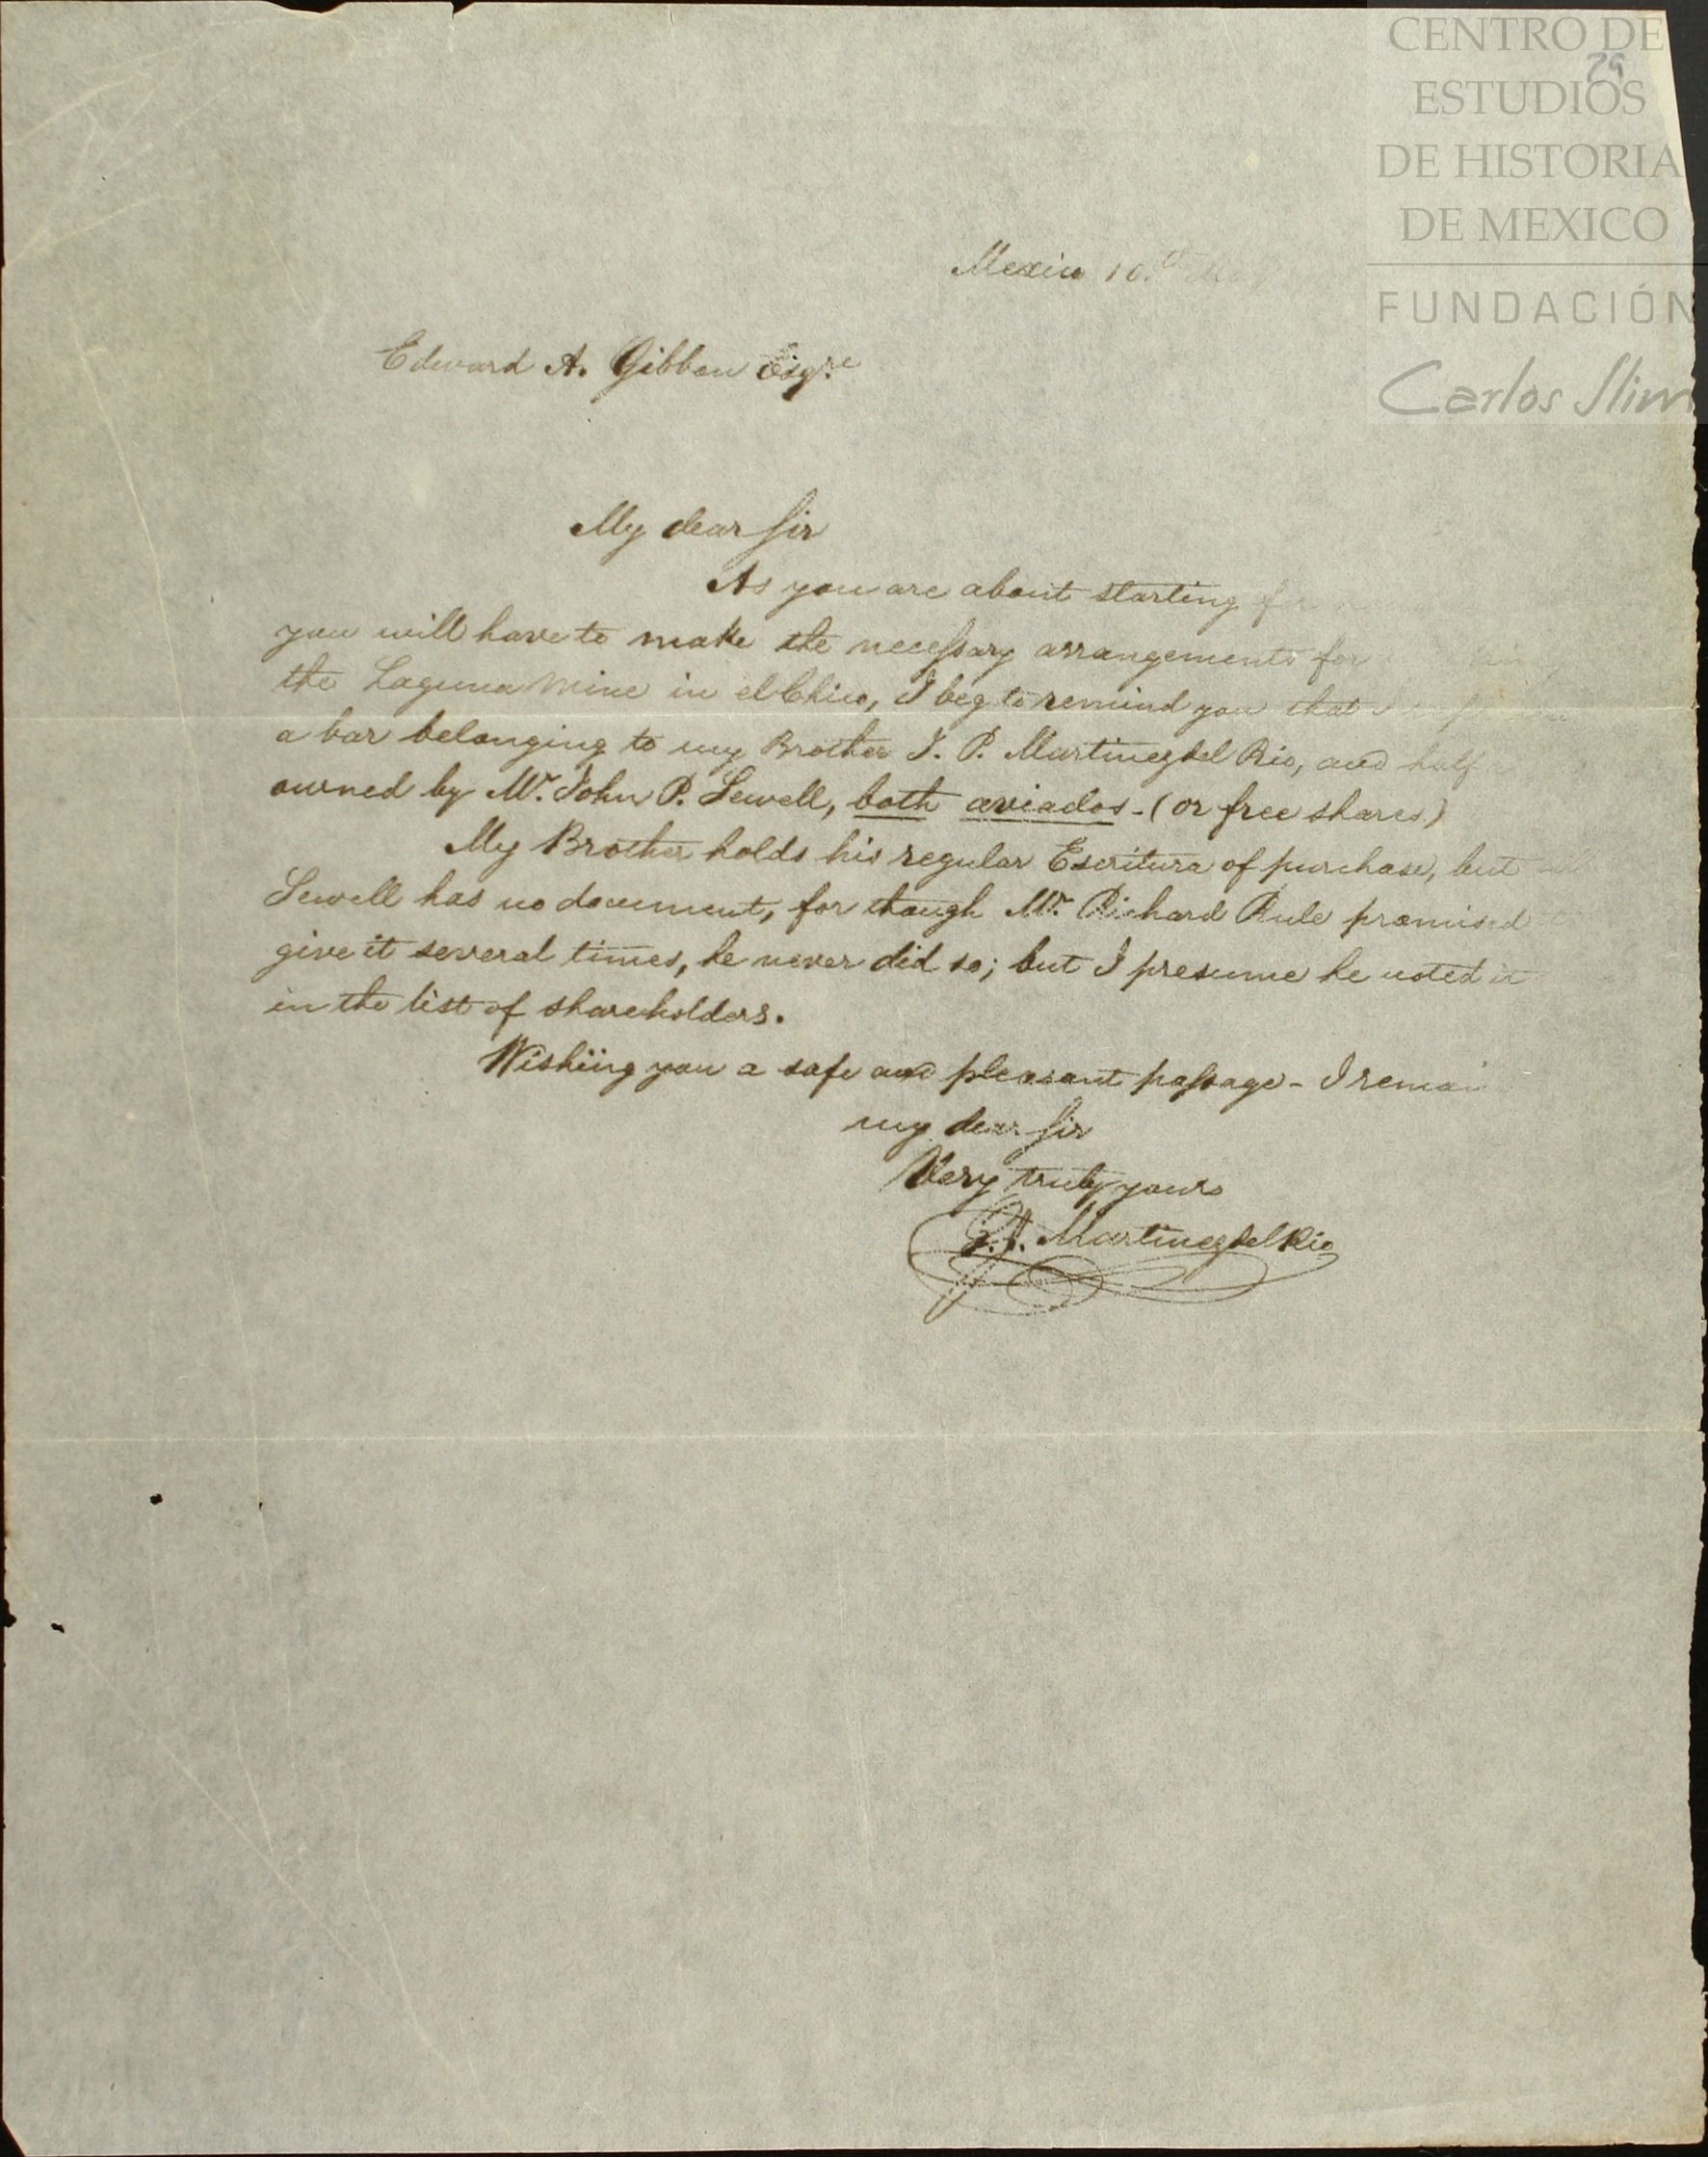 CENTRO DE
79
ESTUDIOS
DE HISTORIA
DE MEXICO
FUNDACIÓN
Carlos Slim
Mexico 10.th
Edward A. Gibbon Esqre
My dear Sir
As you are about starting for
you will have to make the necessary arrangements for
the Laguna Mine in el Chico, I beg to remind you that I
a bar belonging to my Brother J. P. Martinez del Rio, and half
owned by Mr. John P. Sewell, both aviados - (or free shares)
My Brother holds his regular Escritura of purchase, but
Sewell has no document, for though Mr. Richard Rule promised
give it several times, he never did so; but I presume he noted it
in the list of shareholders.
Wishiing you a safe and pleasant passage - I remai
my dear Sir
Very truly yours
Martinez del Rio